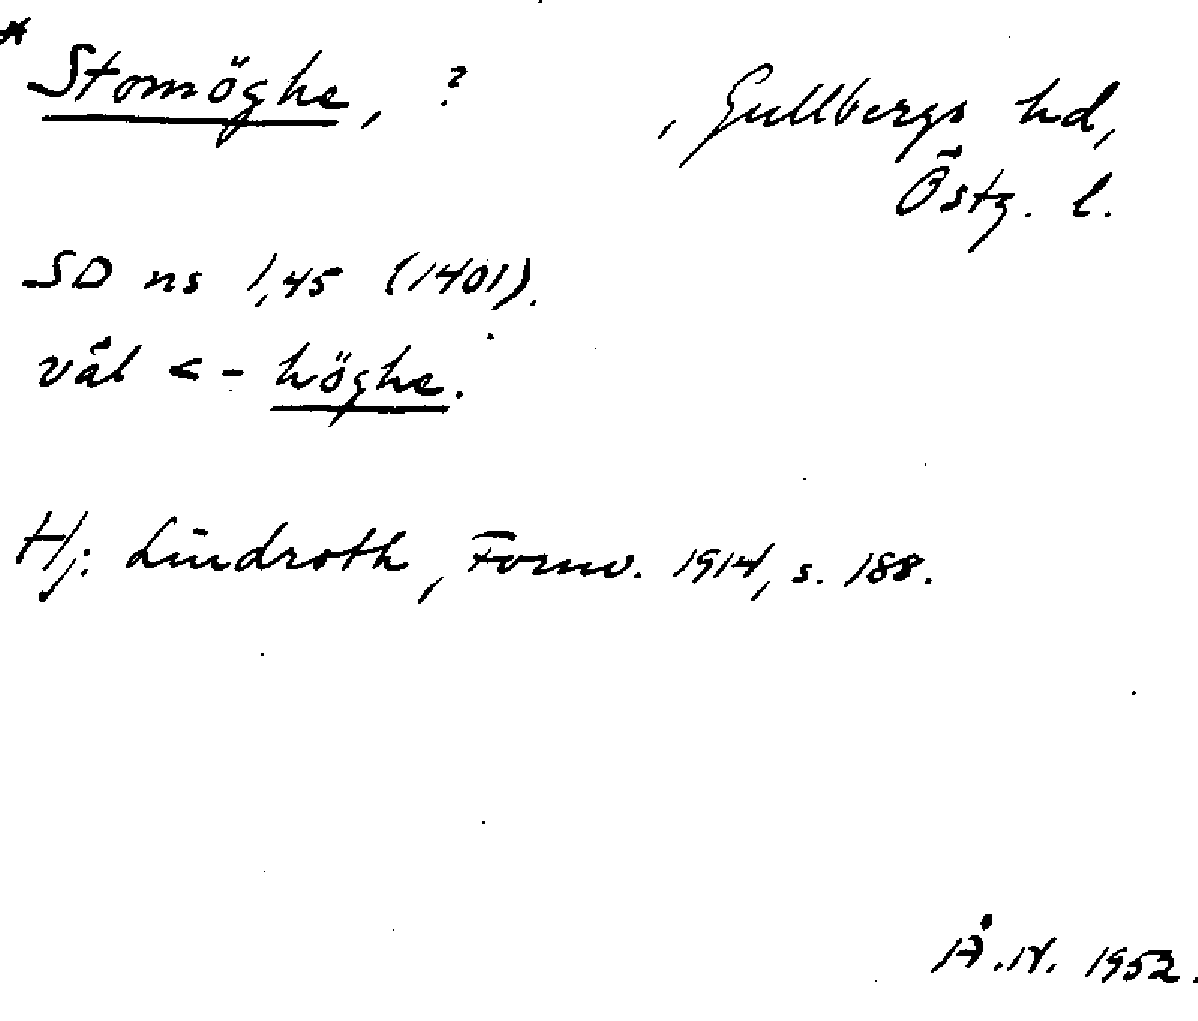 * Stomöghe, ? , Gullbergs hd,
Östg. l.
SD ns 1,45 (1401).
väl < - höghe.
Hj: Lindroth, Fornv. 1914, s. 188.
Å.N. 1952.